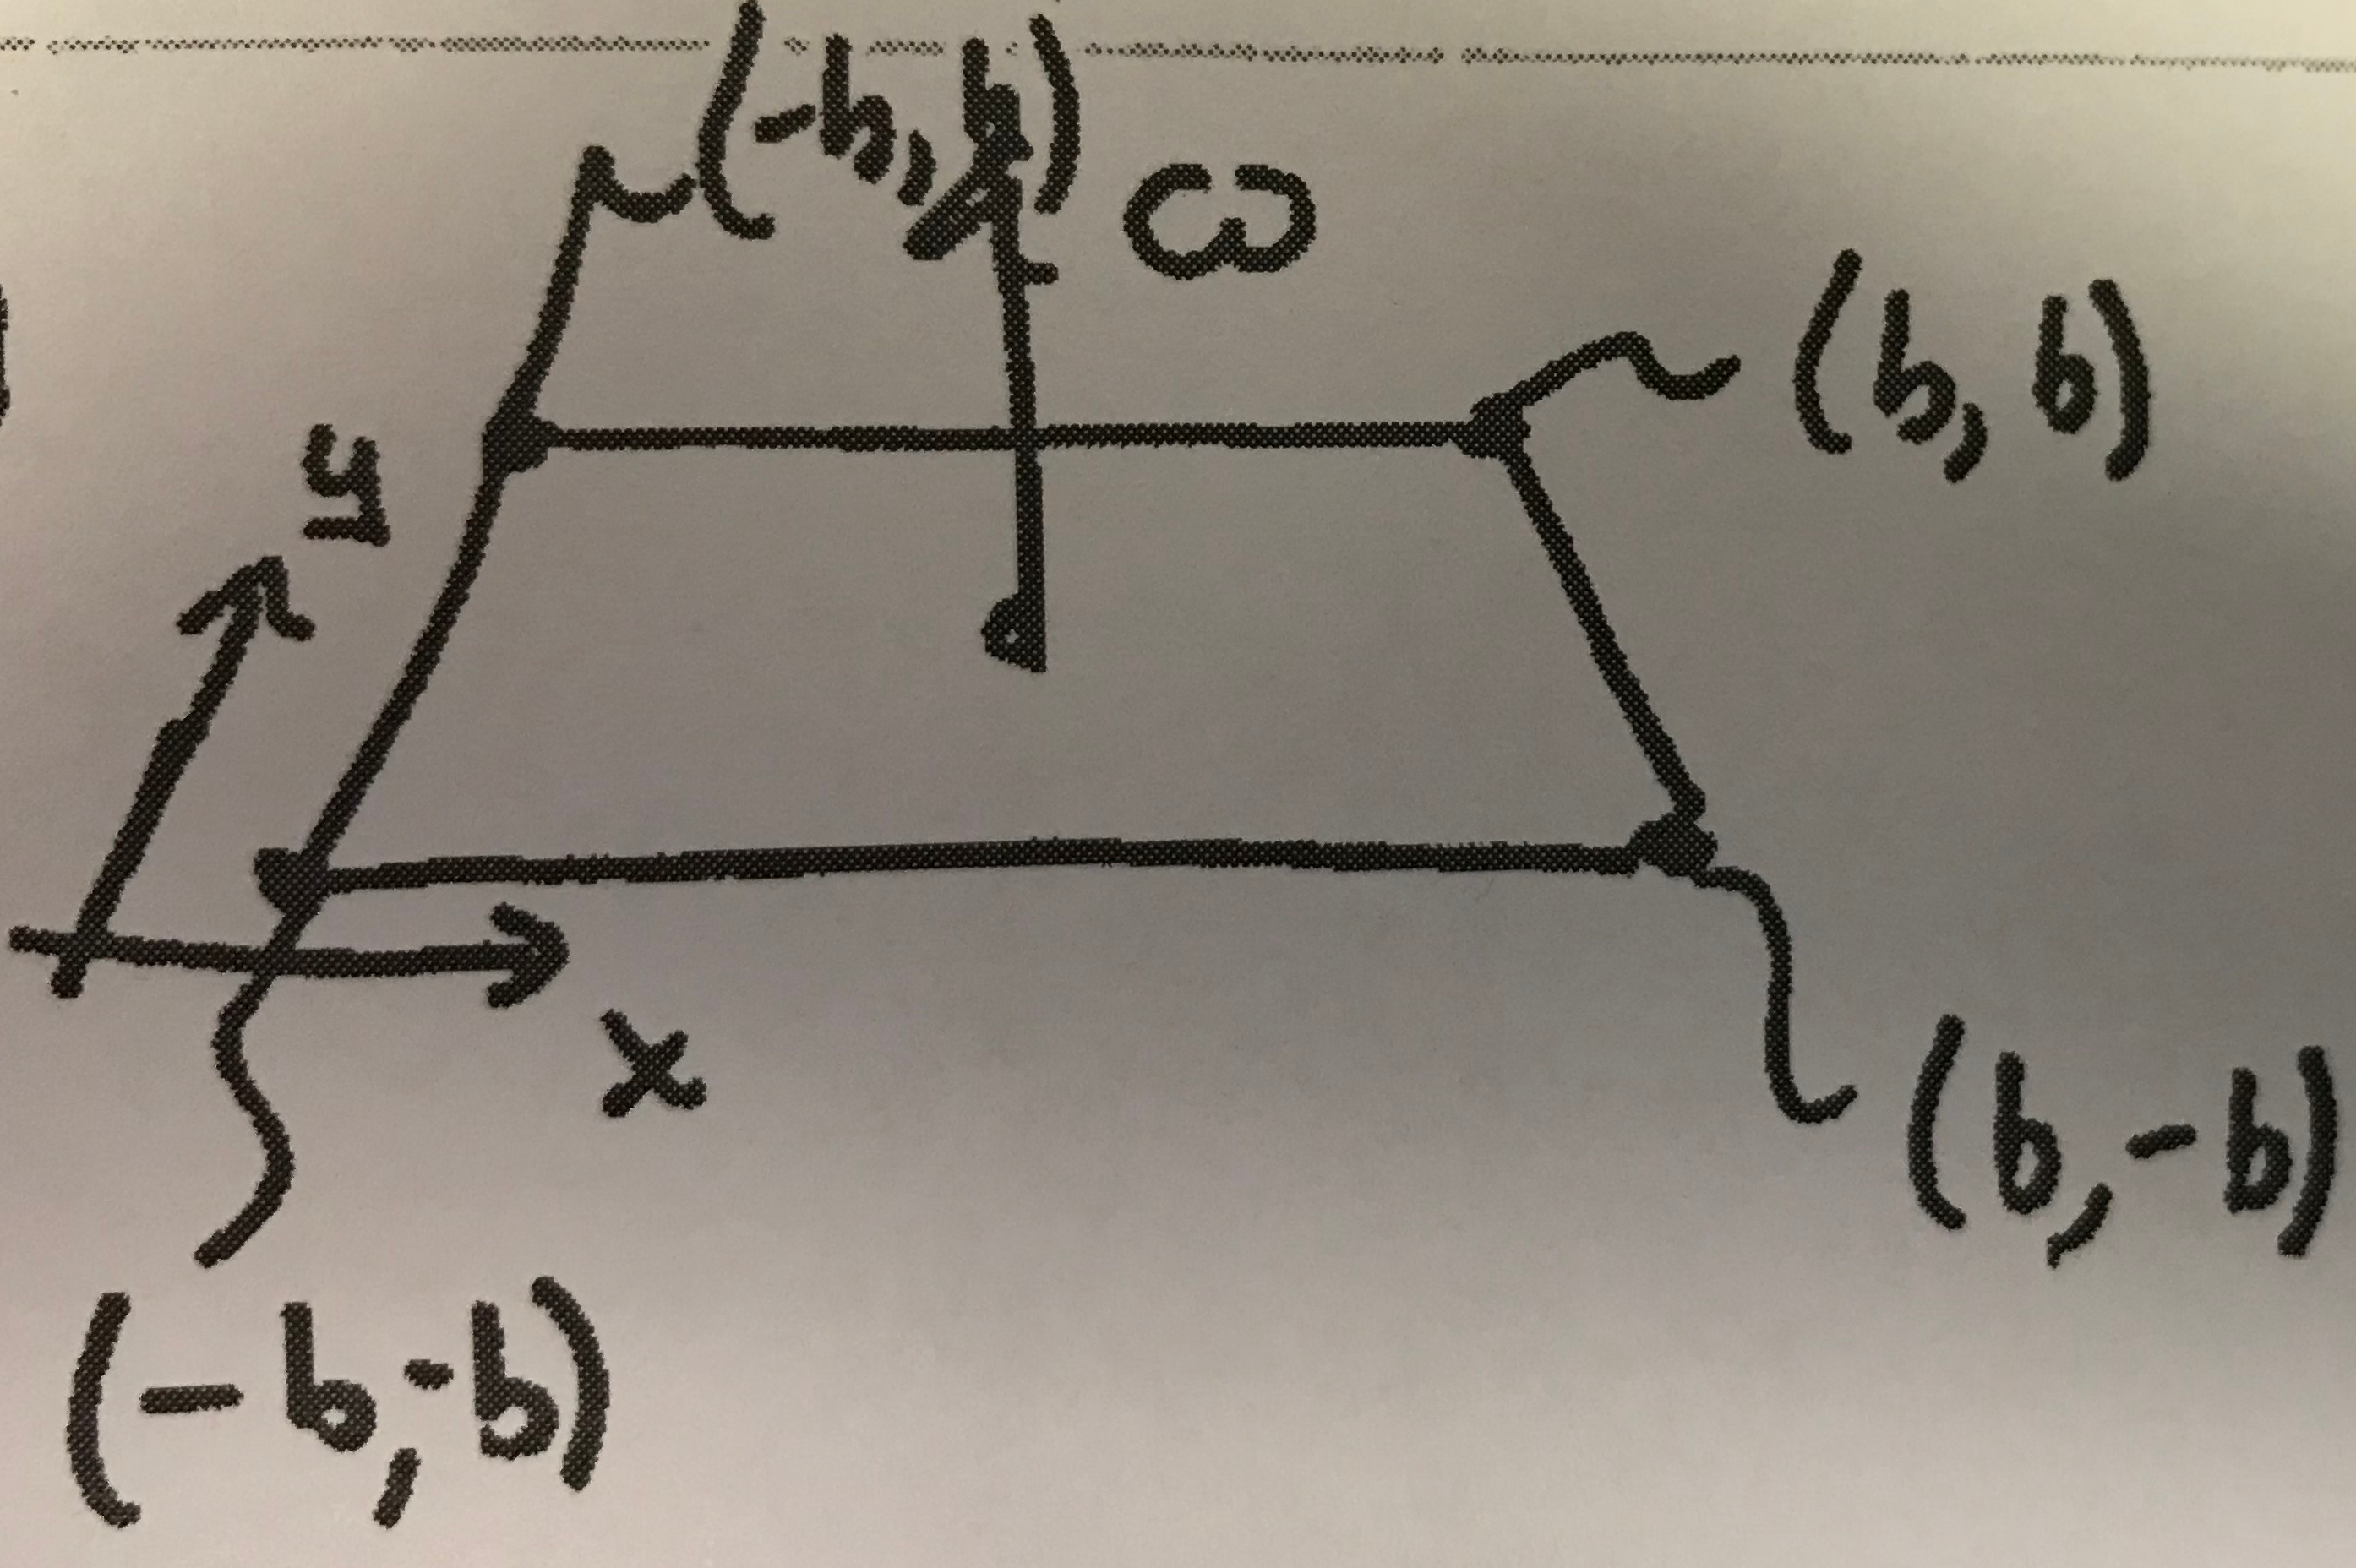 (-b, b)
ω
(b, b)
y
x
(b, -b)
(-b, -b)